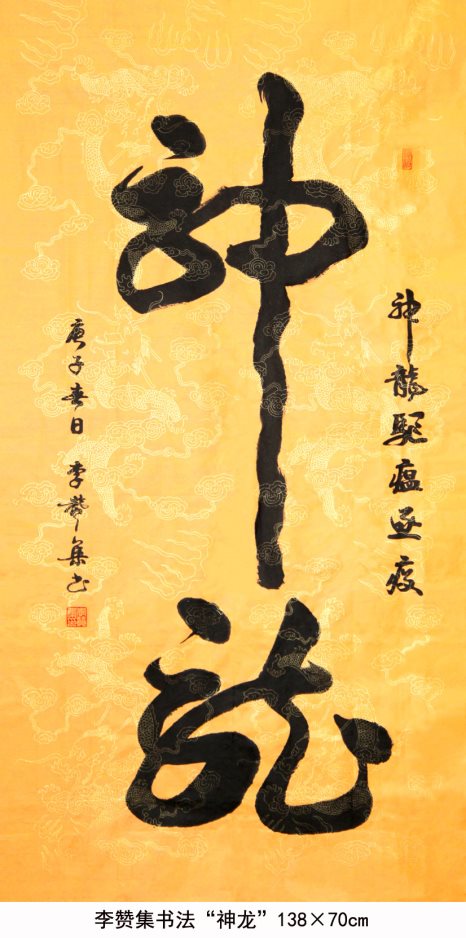 神龍驅瘟逐疫
神龍
庚子春日 李贊集书
李赞集书法“神龙”138×70cm